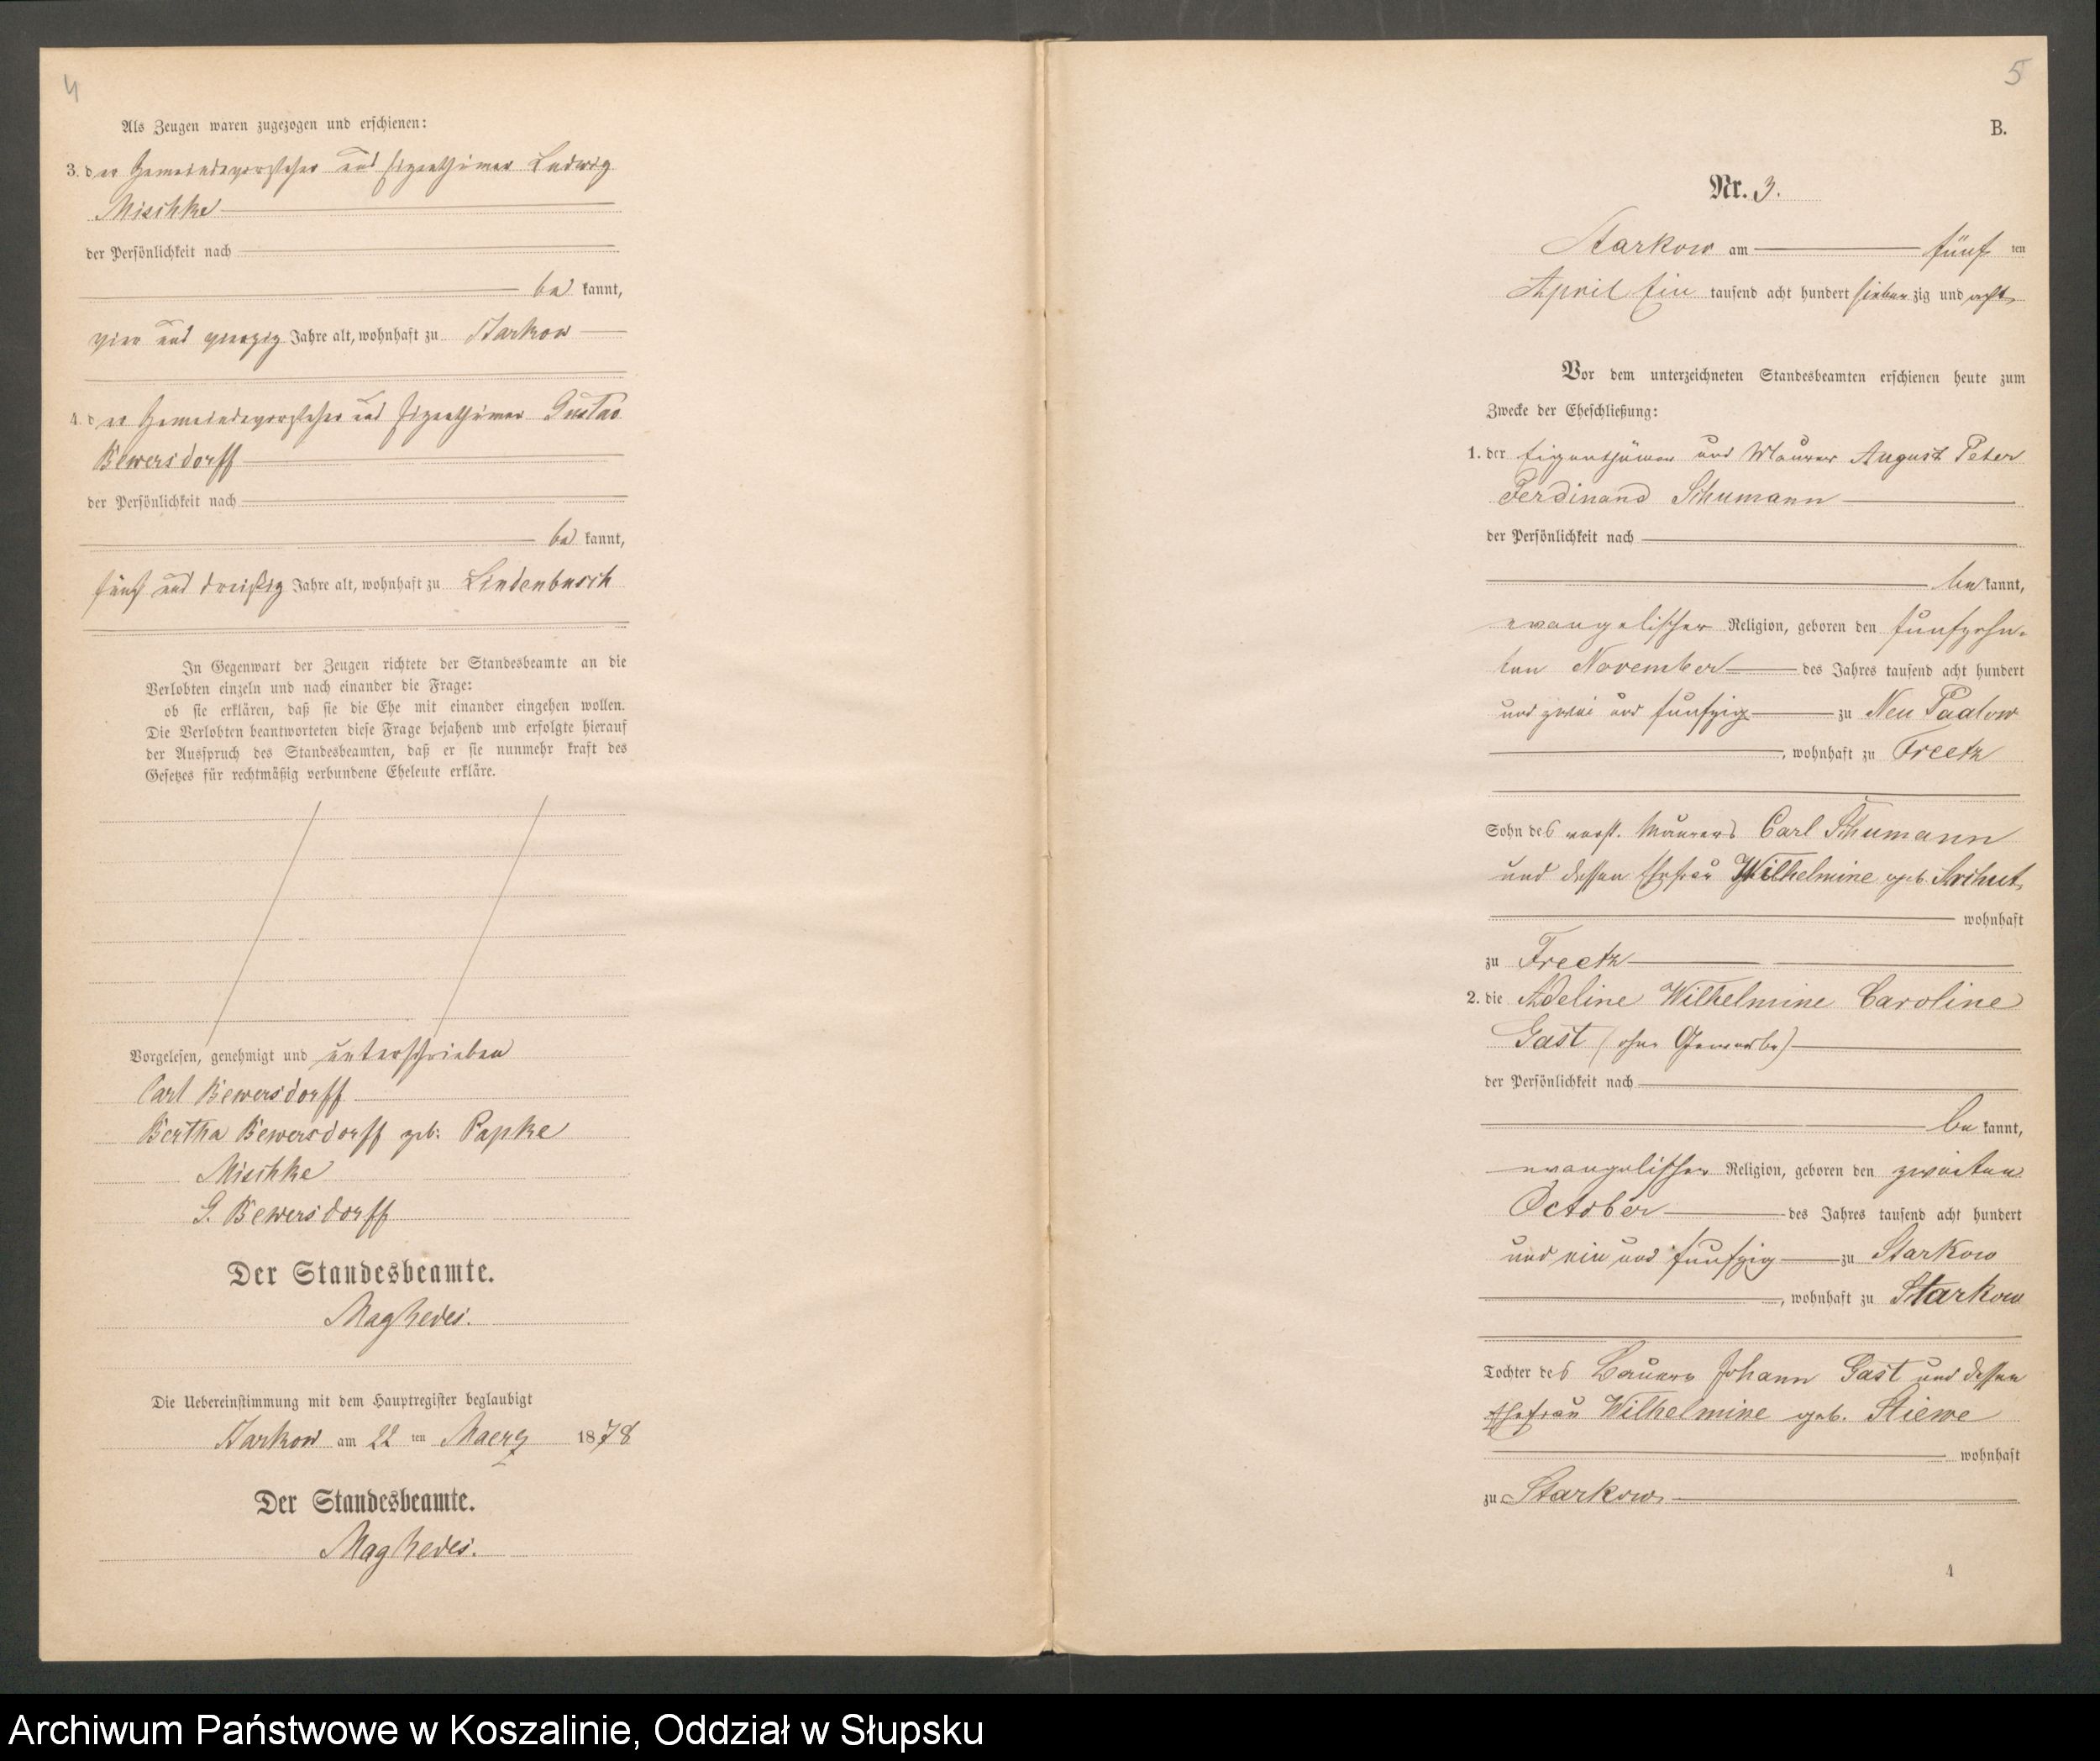 4
Als Zeugen waren zugezogen und erschienen:
3. der Gemeindevorsteher und Eigenthümer Ludwig
Mischke
der Persönlichkeit nach
be kannt,
vier und vierzig Jahre alt, wohnhaft zu Starkow
4. der Gemeindevorsteher und Eigenthümer Gustav
Bewersdorff
der Persönlichkeit nach
be kannt,
fünf und dreißig Jahre alt, wohnhaft zu Lindenbusch
In Gegenwart der Zeugen richtete der Standesbeamte an die
Verlobten einzeln und nach einander die Frage:
ob sie erklären, daß sie die Ehe mit einander eingehen wollen.
Die Verlobten beantworteten diese Frage bejahend und erfolgte hierauf
der Ausspruch des Standesbeamten, daß er sie nunmehr kraft des
Gesetzes für rechtmäßig verbundene Eheleute erkläre.
Vorgelesen, genehmigt und unterschrieben
Carl Bewersdorff
Bertha Bewersdorff geb: Papke
Mischke
G. Bewersdorff
Der Standesbeamte.
Die Uebereinstimmung mit dem Hauptregister beglaubigt
Starkow am 22 ten Maerz 1878
Der Standesbeamte.
5
B.
Nr. 3.
Starkow am fünf ten
April Ein tausend acht hundert sieben zig und acht
Vor dem unterzeichneten Standesbeamten erschienen heute zum
Zwecke der Eheschließung:
1. der Eigenthümer und Maurer August Peter
Ferdinand Schumann
der Persönlichkeit nach
be kannt,
evangelischer Religion, geboren den fünfzehn-
ten November des Jahres tausend acht hundert
und zwei und fünfzig zu Neu Paalow
, wohnhaft zu Freetz
Sohn des verst. Maurers Carl Schumann
und dessen Ehefrau Wilhelmine geb.
wohnhaft
zu Freetz
2. die Adeline Wilhelmine Caroline
Gast (ohne Gewerbe)
der Persönlichkeit nach
be kannt,
evangelischer Religion, geboren den zweiten
October des Jahres tausend acht hundert
und ein und fünfzig zu Starkow
, wohnhaft zu Starkow
Tochter des Bauern Johann Gast und dessen
Ehefrau Wilhelmine geb. Stiewe
wohnhaft
zu Starkow
4
Archiwum Państwowe w Koszalinie, Oddział w Słupsku